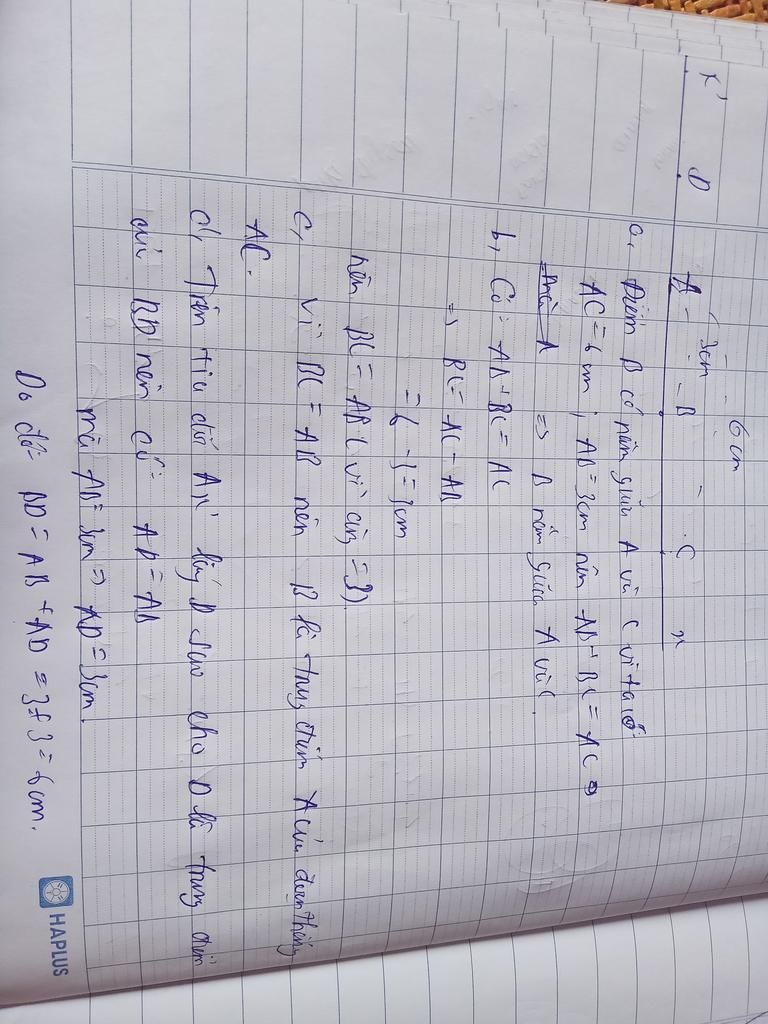 6cm
3cm
x' D A B C x
a, Điểm B có nằm giữa A và C vì ta có:
AC = 6 cm ; AB = 3cm nên AB + BC = AC
=> B nằm giữa A và C.
b, Có: AB + BC = AC
=> BC = AC - AB
= 6 - 3 = 3cm
nên BC = AB ( vì cùng = 3).
c, Vì BC = AB nên B là trung điểm A của đoạn thẳng
AC.
d, Trên tia đối Ax' lấy D sao cho D là trung điểm
của BD nên có: AD = AB
mà AB = 3cm => AD = 3cm.
Do đó: BD = AB + AD = 3 + 3 = 6 cm.
HAPLUS